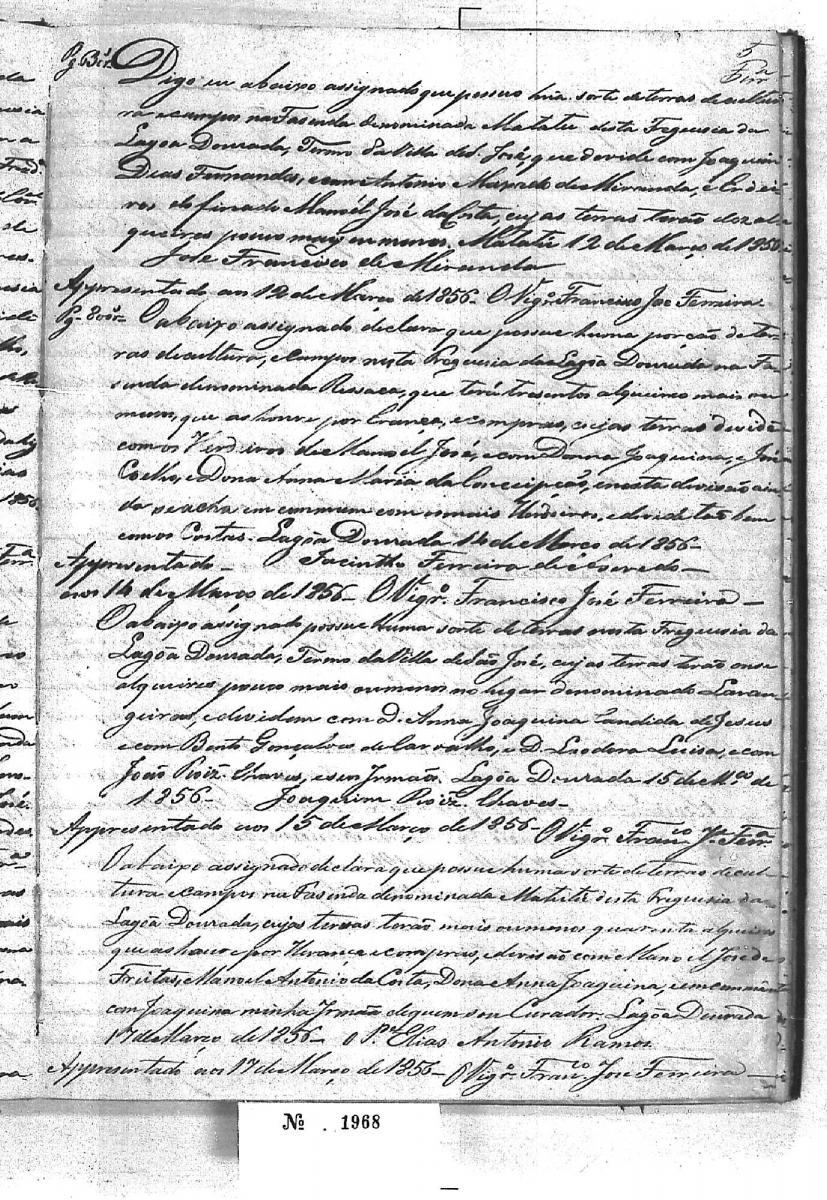 5
Ferr.ª
Pg.
Digo eu abaixo assignado que possuo hua sorte de terras de cultu
ra e campos na Fasenda denominada Matatú desta Freguesia da
Lagôa Dourada, Termo da Villa de S. José, que devide com Joaquim
Dias Fernandes, e com Antonio Machado de Miranda, e Erdei
ros do finado Manoél José da Costa, cujas terras terão doze al
queires pouco mais ou menos. Matatú 12 de Março de 1856
José Francisco de Miranda
Appresentado aos 12 de Março de 1856. O Vigr.º Francisco José Ferreira
Pg. O abaixo assignado declara que possue huma porção de ter
ras de cultura, e campos nesta Freguesia da Lagôa Dourada na Fa
senda denominada Ressaca, que terá tresentos alqueires mais ou
menos, que as houve por erança, e compras, cujas terras devide
com os Herdeiros de Manoel José, e com Donna Joaquina, e José
Coelho, e Dona Anna Maria da Conceipção, e nesta devisão ain
da se acha em commum com o mais Herdeiros, e devide tão bem
com os Costas. Lagôa Dourada 14 de Março de 1856-
Appresentado- Jacintho Ferreira de
aos 14 de Março de 1856- O Vigr.º Francisco José Ferreira-
O abaixo assignado possue huma sorte de terras nesta Freguesia da
Lagôa Dourada, Termo da Villa de São José, cujas terras terão onse
alqueires pouco mais ou menos no lugar denominado Laran
geiras, e devidem com D. Anna Joaquina Candida de Jesus
e com Bento Gonçalves de Carvalho, e D. Luisa, e com
João Roiz. Chaves, e seu Irmão. Lagôa Dourada 15 de M.ço de
1856- Joaquim Roiz. Chaves-
Appresentado aos 15 de Março de 1856- O Vigr.º Fran.co J.e Ferr.ª
O abaixo assignado declara que possue huma sorte de terras de cul
tura e campos na Fasenda denominada Matutú desta Freguesia da
Lagôa Dourada, cujas terras terão mais ou menos quarenta alqueires
que as houve por Herança e compras, e devisão com Manoel José de
Freitas, Manoel Antonio da Costa, Dona Anna Joaquina, e em commum
com Joaquina minha Irmãa de quem sou Curador. Lagôa Dourada
17 de Março de 1856- O P.e Elias Antonio Ramos.
Appresentado aos 17 de Março de 1856- O Vigr.º Fran.co José Ferreira-
Nº . 1968